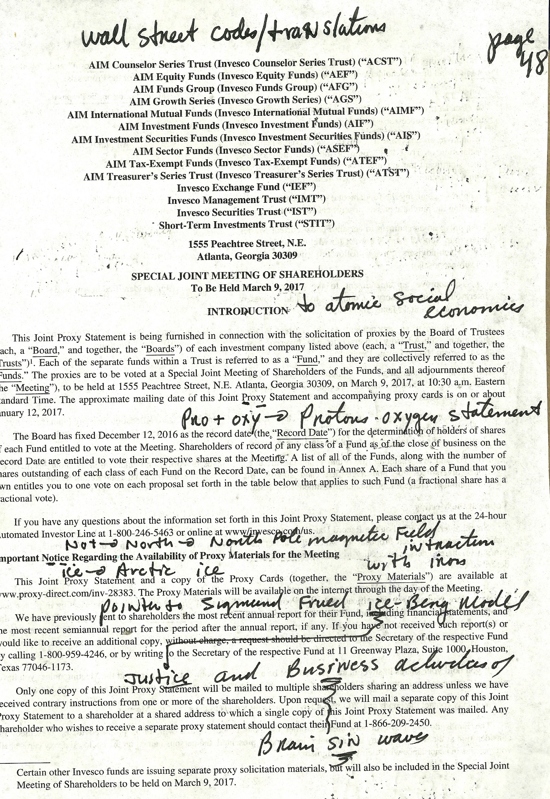 wall street codes/translations
page 48
AIM Counselor Series Trust (Invesco Counselor Series Trust) ("ACST")
AIM Equity Funds (Invesco Equity Funds) ("AEF")
AIM Funds Group (Invesco Funds Group) ("AFG")
AIM Growth Series (Invesco Growth Series) ("AGS")
AIM International Mutual Funds (Invesco International Mutual Funds) ("AIMF")
AIM Investment Funds (Invesco Investment Funds) (AIF")
AIM Investment Securities Funds (Invesco Investment Securities Funds) ("AIS")
AIM Sector Funds (Invesco Sector Funds) ("ASEF")
AIM Tax-Exempt Funds (Invesco Tax-Exempt Funds) ("ATEF")
AIM Treasurer's Series Trust (Invesco Treasurer's Series Trust) ("ATST")
Invesco Exchange Fund ("IEF")
Invesco Management Trust ("IMT")
Invesco Securities Trust ("IST")
Short-Term Investments Trust ("STIT")
1555 Peachtree Street, N.E.
Atlanta, Georgia 30309
SPECIAL JOINT MEETING OF SHAREHOLDERS
To Be Held March 9, 2017
INTRODUCTION to atomic social
economics
This Joint Proxy Statement is being furnished in connection with the solicitation of proxies by the Board of Trustees
each, a "Board," and together, the "Boards") of each investment company listed above (each, a "Trust," and together, the
Trusts")¹. Each of the separate funds within a Trust is referred to as a "Fund," and they are collectively referred to as the
Funds." The proxies are to be voted at a Special Meeting of Shareholders of the Funds, and all adjournments thereof
the "Meeting"), to be held at 1555 Peachtree Street, N.E. Atlanta, Georgia 30309, on March 9, 2017, at 10:30 a.m. Eastern
Standard Time. The approximate mailing date of this Joint Proxy Statement and accompanying proxy cards is on or about
anuary 12, 2017.
Pro + oxy → Protons - oxygen statement
The Board has fixed December 12, 2016 as the record date (the, "Record Date") for the determination of holders of shares
of each Fund entitled to vote at the Meeting. Shareholders of record of any class of a Fund as of the close of business on the
ecord Date are entitled to vote their respective shares at the Meeting. A list of all of the Funds, along with the number of
hares outstanding of each class of each Fund on the Record Date, can be found in Annex A. Each share of a Fund that you
own entitles you to one vote on each proposal set forth in the table below that applies to such Fund (a fractional share has a
actional vote).
If you have any questions about the information set forth in this Joint Proxy Statement, please contact us at the 24-hour
utomated Investor Line at 1-800-246-5463 or online at www.invesco.com/us.
Not → North → North Pole magnetic Field
intraction
mportant Notice Regarding the Availability of Proxy Materials for the Meeting
with irons
ice → Arctic ice
This Joint Proxy Statement and a copy of the Proxy Cards (together, the "Proxy Materials") are available at
www.proxy-direct.com/inv-28383. The Proxy Materials will be available on the internet through the day of the Meeting.
points to Sigmund Frued ice-Berg Model
We have previously sent to shareholders the most recent annual report for their Fund, including financial statements, and
he most recent semiannual report for the period after the annual report, if any. If you have not received such report(s) or
would like to receive an additional copy, without charge, a request should be directed to the Secretary of the respective Fund
y calling 1-800-959-4246, or by writing to the Secretary of the respective Fund at 11 Greenway Plaza, Suite 1000, Houston,
Texas 77046-1173.
Justice and Business activities of
Only one copy of this Joint Proxy Statement will be mailed to multiple shareholders sharing an address unless we have
eceived contrary instructions from one or more of the shareholders. Upon request, we will mail a separate copy of this Joint
Proxy Statement to a shareholder at a shared address to which a single copy of this Joint Proxy Statement was mailed. Any
hareholder who wishes to receive a separate proxy statement should contact their Fund at 1-866-209-2450.
Brain sin waves
Certain other Invesco funds are issuing separate proxy solicitation materials, but will also be included in the Special Joint
Meeting of Shareholders to be held on March 9, 2017.